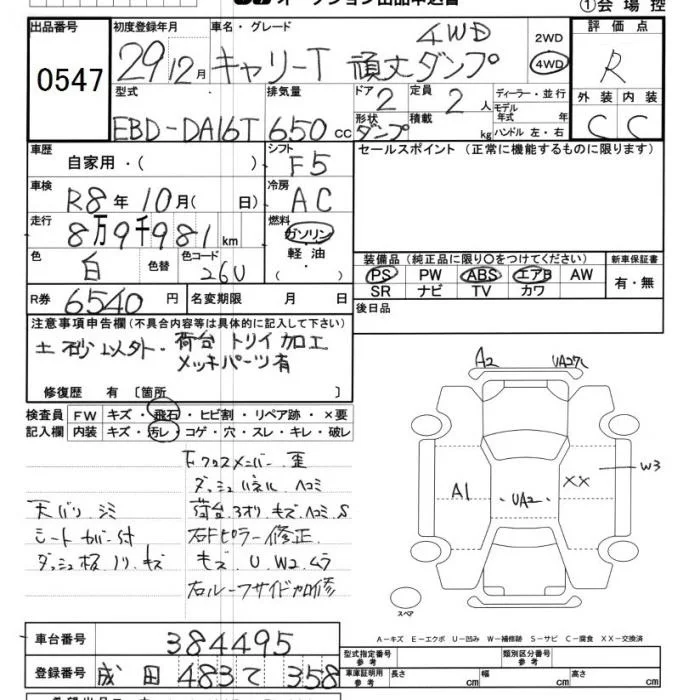 ①会場控
出品番号 0547
初度登録年月 29 12月
車名・グレード キャリーT 頑丈ダンプ 4WD
2WD
4WD
評価点 R
型式 EBD-DA16T
排気量 650 cc
ドア 2
定員 2 人
形状 ダンプ
積載 kg
ディーラー・並行
モデル年式 年
ハンドル 左・右
外装 内装
C C
車歴 自家用・( )
シフト F5
セールスポイント (正常に機能するものに限ります)
車検 R8年 10月( 日)
冷房 AC
走行 8万9千981km
燃料 ガソリン
軽油
・( )
色 白 色替
色コード 26U
装備品 (純正品に限り〇をつけてください)
新車保証書
PS PW ABS エアB AW
SR ナビ TV カワ
有・無
R券 6540円
名変期限 月 日
後日品
注意事項申告欄(不具合内容等は具体的に記入して下さい)
土砂以外・荷台トリイ加工
メッキパーツ有
修復歴 有 〔箇所 〕
検査員 FW キズ・飛石・ヒビ割・リペア跡・×要
記入欄 内装 キズ・汚レ・コゲ・穴・スレ・キレ・破レ
Fクロスメンバー歪
ダッシュパネルヘコミ
天バリシミ
荷台.3オリ.キズ.ヘコミ.S
シートカバー付
右Fピラー修正
ダッシュ板ノリ.キズ
キズ U W2 ムラ
右ルーフサイド加修
A2
UA27L
W3
A1
UA2
XX
スペア
A-キズ E-エクボ U-凹み W-補修跡 S-サビ C-腐食 XX-交換済
車台番号 384495
登録番号 成田 483 て 358
型式指定番号 参考
類別区分番号 参考
車庫証明用 参考
長さ cm
幅 cm
高さ cm